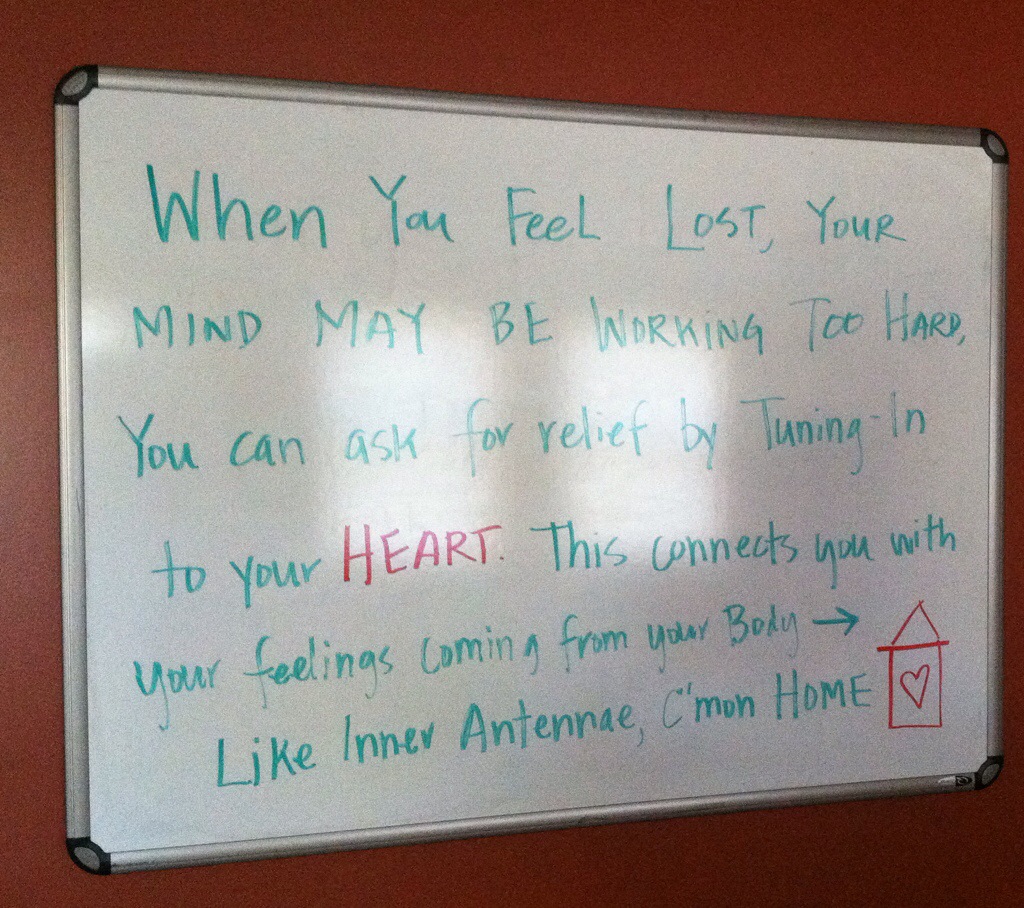 When You Feel Lost, Your
MIND MAY BE WORKING Too HARD,
You can ask for relief by Tuning-In
to your HEART. This connects you with
your feelings coming from your Body →
Like Inner Antennae, C'mon HOME